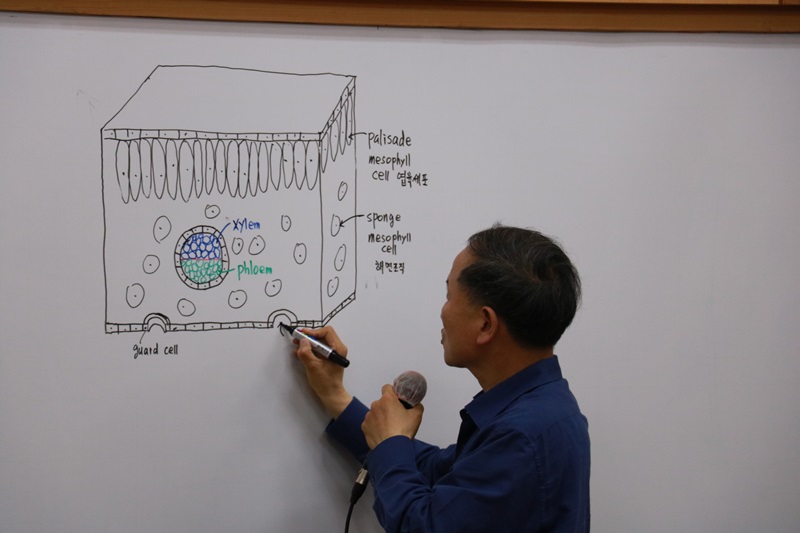 palisade
mesophyll
cell 엽육세포
sponge
mesophyll
cell
해면조직
xylem
phloem
guard cell